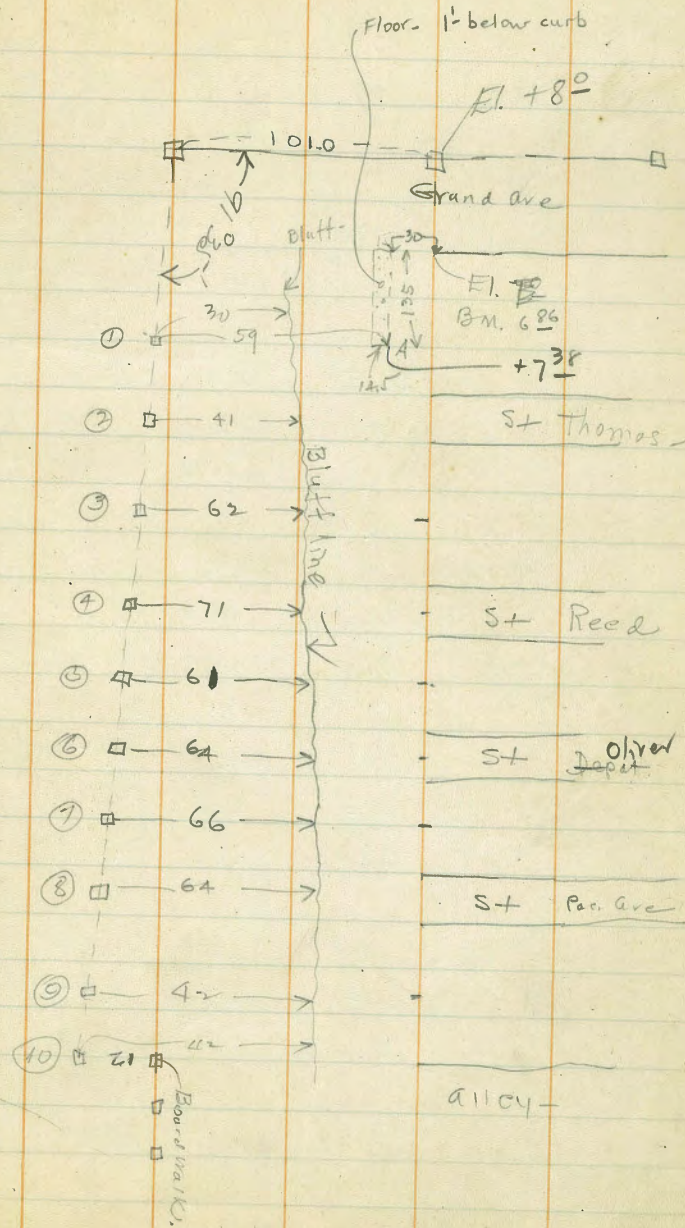 Floor- 1' below curb
El. +8 0
101.0
Grand ave
91
Bluff-
30
135
El.
B.M. 6 86
A
14.5
+7 38
① 30
59
② 41
St Thomas-
③ 62
Bluff line
④ 71
St Reed
⑤ 61
⑥ 64
St Depot Oliver
⑦ 66
⑧ 64
St Pac. ave
⑨ 42
⑩ 21 42
Boardwalk.
alley-